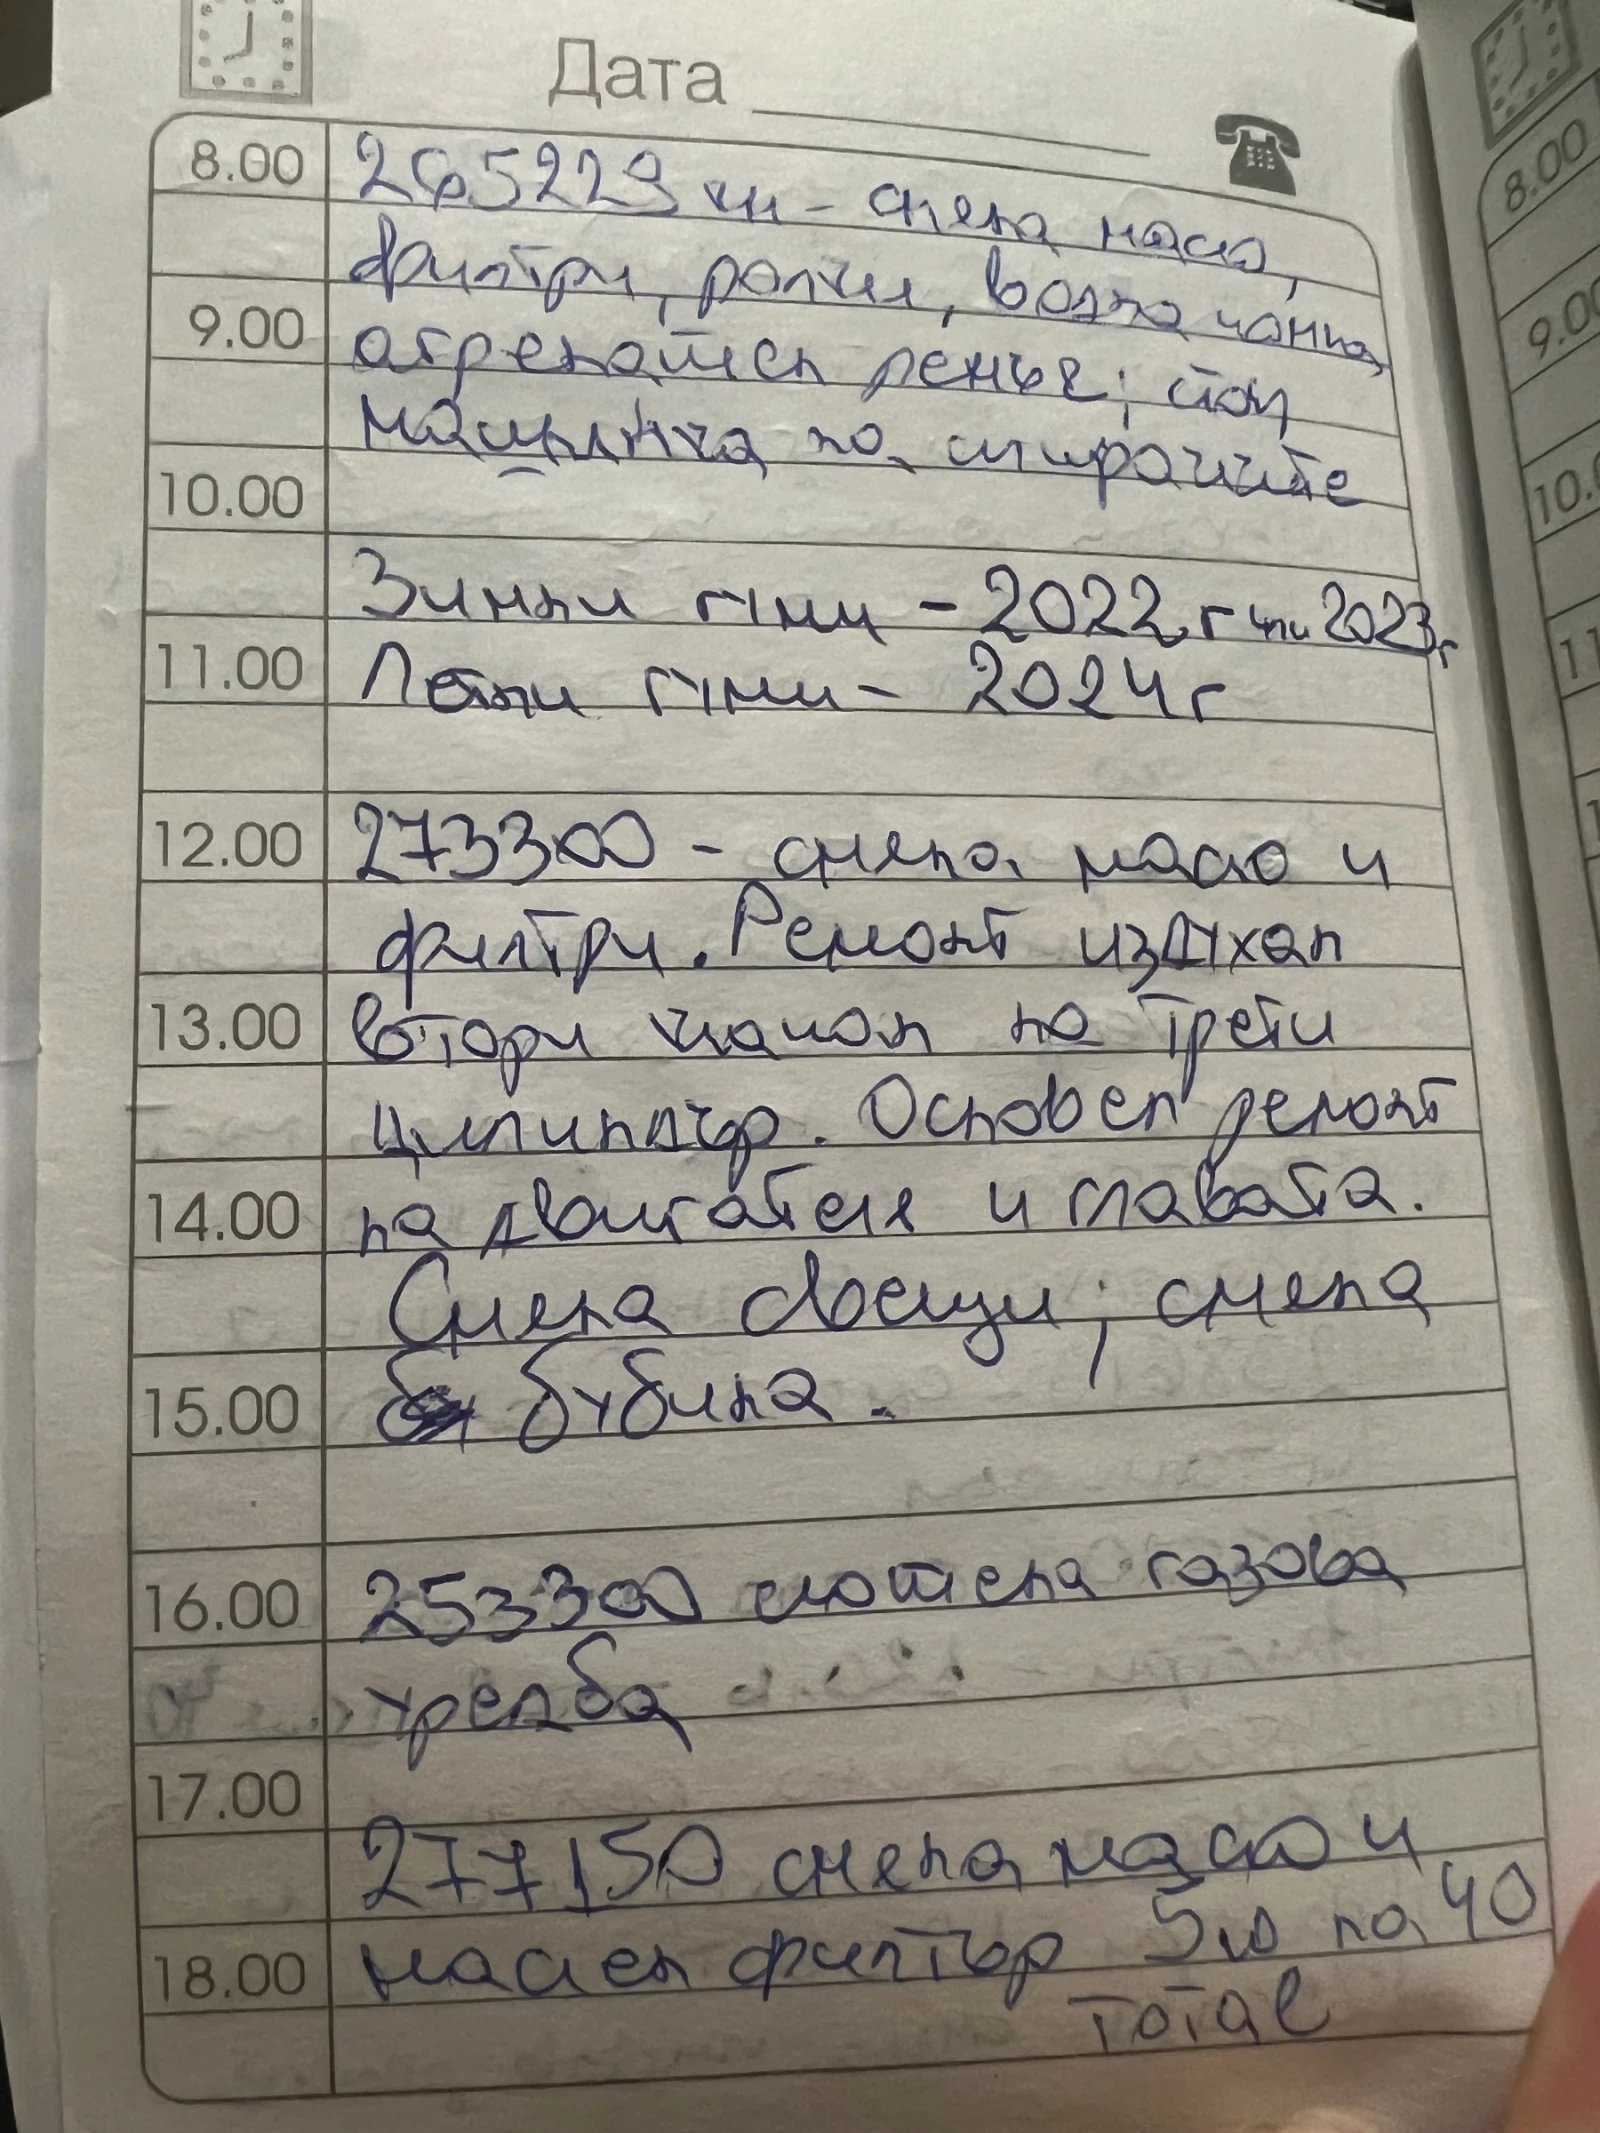 Дата
8.00 265223 км - смяна масло,
филтри, ролки, водна помпа,
9.00 ангренажен ремък; стоп
машинка на спирачките
10.00
Зимни гуми - 2022 г или 2023 г
11.00 Летни гуми - 2024 г
12.00 273300 - смена масло и
филтри. Ремонт издухан
13.00 втори клапан на трети
цилиндър. Основен ремонт
14.00 на двигателя и главата.
Смена свещи; смена
15.00 бубина.
16.00 253300 сложена газова
уредба
17.00
277150 смена масло и
18.00 маслен филтър 5w на 40
total
8.00
9.00
10.0
11
1